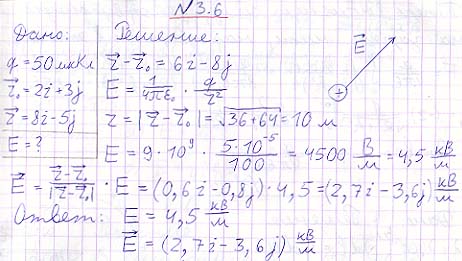 №3.6
Дано:
Решение:
q = 50 мкКл
r⃗₀ = 2i + 3j
r⃗ = 8i - 5j
E = ?
r⃗ - r⃗₀ = 6i - 8j
E = 1/(4πε₀) · q/r²
r = |r⃗ - r⃗₀| = √(36+64) = 10 м
E = 9 · 10⁹ · (5·10⁻⁵)/100 = 4500 В/м = 4,5 кВ/м
E⃗ = (r⃗ - r⃗₀)/|r⃗ - r⃗₀| · E = (0,6i - 0,8j) · 4,5 = (2,7i - 3,6j) кВ/м
Ответ: E = 4,5 кВ/м
E⃗ = (2,7i - 3,6j) кВ/м
E⃗
+